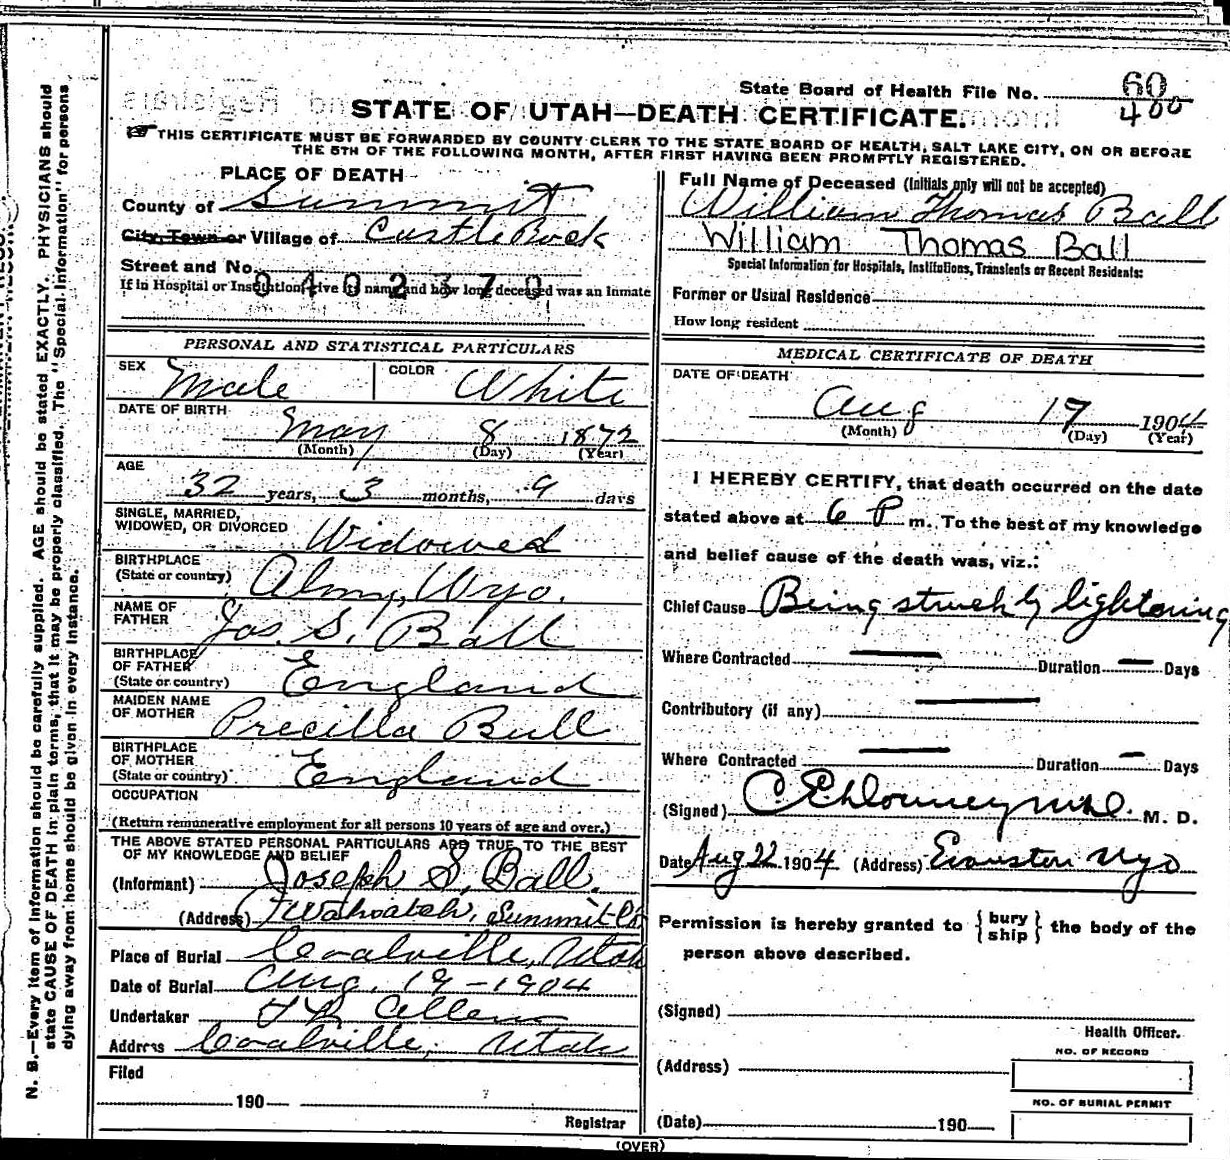 State Board of Health File No. 60
400
STATE OF UTAH—DEATH CERTIFICATE.
THIS CERTIFICATE MUST BE FORWARDED BY COUNTY CLERK TO THE STATE BOARD OF HEALTH, SALT LAKE CITY, ON OR BEFORE
THE 5TH OF THE FOLLOWING MONTH, AFTER FIRST HAVING BEEN PROMPTLY REGISTERED.
PLACE OF DEATH
County of Summit
City, Town or Village of Castle Rock
Street and No.
If in Hospital or Institution, give its name and how long deceased was an Inmate
0402370
Full Name of Deceased (Initials only will not be accepted)
William Thomas Ball
William Thomas Ball
Special Information for Hospitals, Institutions, Transients or Recent Residents:
Former or Usual Residence
How long resident
PERSONAL AND STATISTICAL PARTICULARS
SEX Male COLOR White
DATE OF BIRTH
May 8 1872
(Month) (Day) (Year)
AGE
32 years, 3 months, 9 days
SINGLE, MARRIED,
WIDOWED, OR DIVORCED Widowed
BIRTHPLACE
(State or country) Almy, Wyo.
NAME OF
FATHER Jos. S. Ball
BIRTHPLACE
OF FATHER
(State or country) England
MAIDEN NAME
OF MOTHER Precilla Bull
BIRTHPLACE
OF MOTHER
(State or country) England
OCCUPATION
(Return remunerative employment for all persons 10 years of age and over.)
THE ABOVE STATED PERSONAL PARTICULARS ARE TRUE TO THE BEST
OF MY KNOWLEDGE AND BELIEF
(Informant) Joseph S. Ball.
(Address) Wahsatch, Summit Co
Place of Burial Coalville, Utah
Date of Burial Aug. 19-1904
Undertaker Allen
Address Coalville, Utah
Filed
190
Registrar
MEDICAL CERTIFICATE OF DEATH
DATE OF DEATH
Aug 17 1904
(Month) (Day) (Year)
I HEREBY CERTIFY, that death occurred on the date
stated above at 6 P m. To the best of my knowledge
and belief cause of the death was, viz.:
Chief Cause Being struck by lightening
Where Contracted — Duration — Days
Contributory (if any) —
Where Contracted — Duration — Days
(Signed) M. D.
Date Aug 22 1904 (Address) Evanston Wyo
Permission is hereby granted to { bury
ship } the body of the
person above described.
(Signed)
Health Officer.
(Address)
NO. OF RECORD
NO. OF BURIAL PERMIT
(Date) 190
(OVER)
N. B.—Every item of information should be carefully supplied. AGE should be stated EXACTLY. PHYSICIANS should
state CAUSE OF DEATH in plain terms, that it may be properly classified. The "Special Information" for persons
dying away from home should be given in every instance.